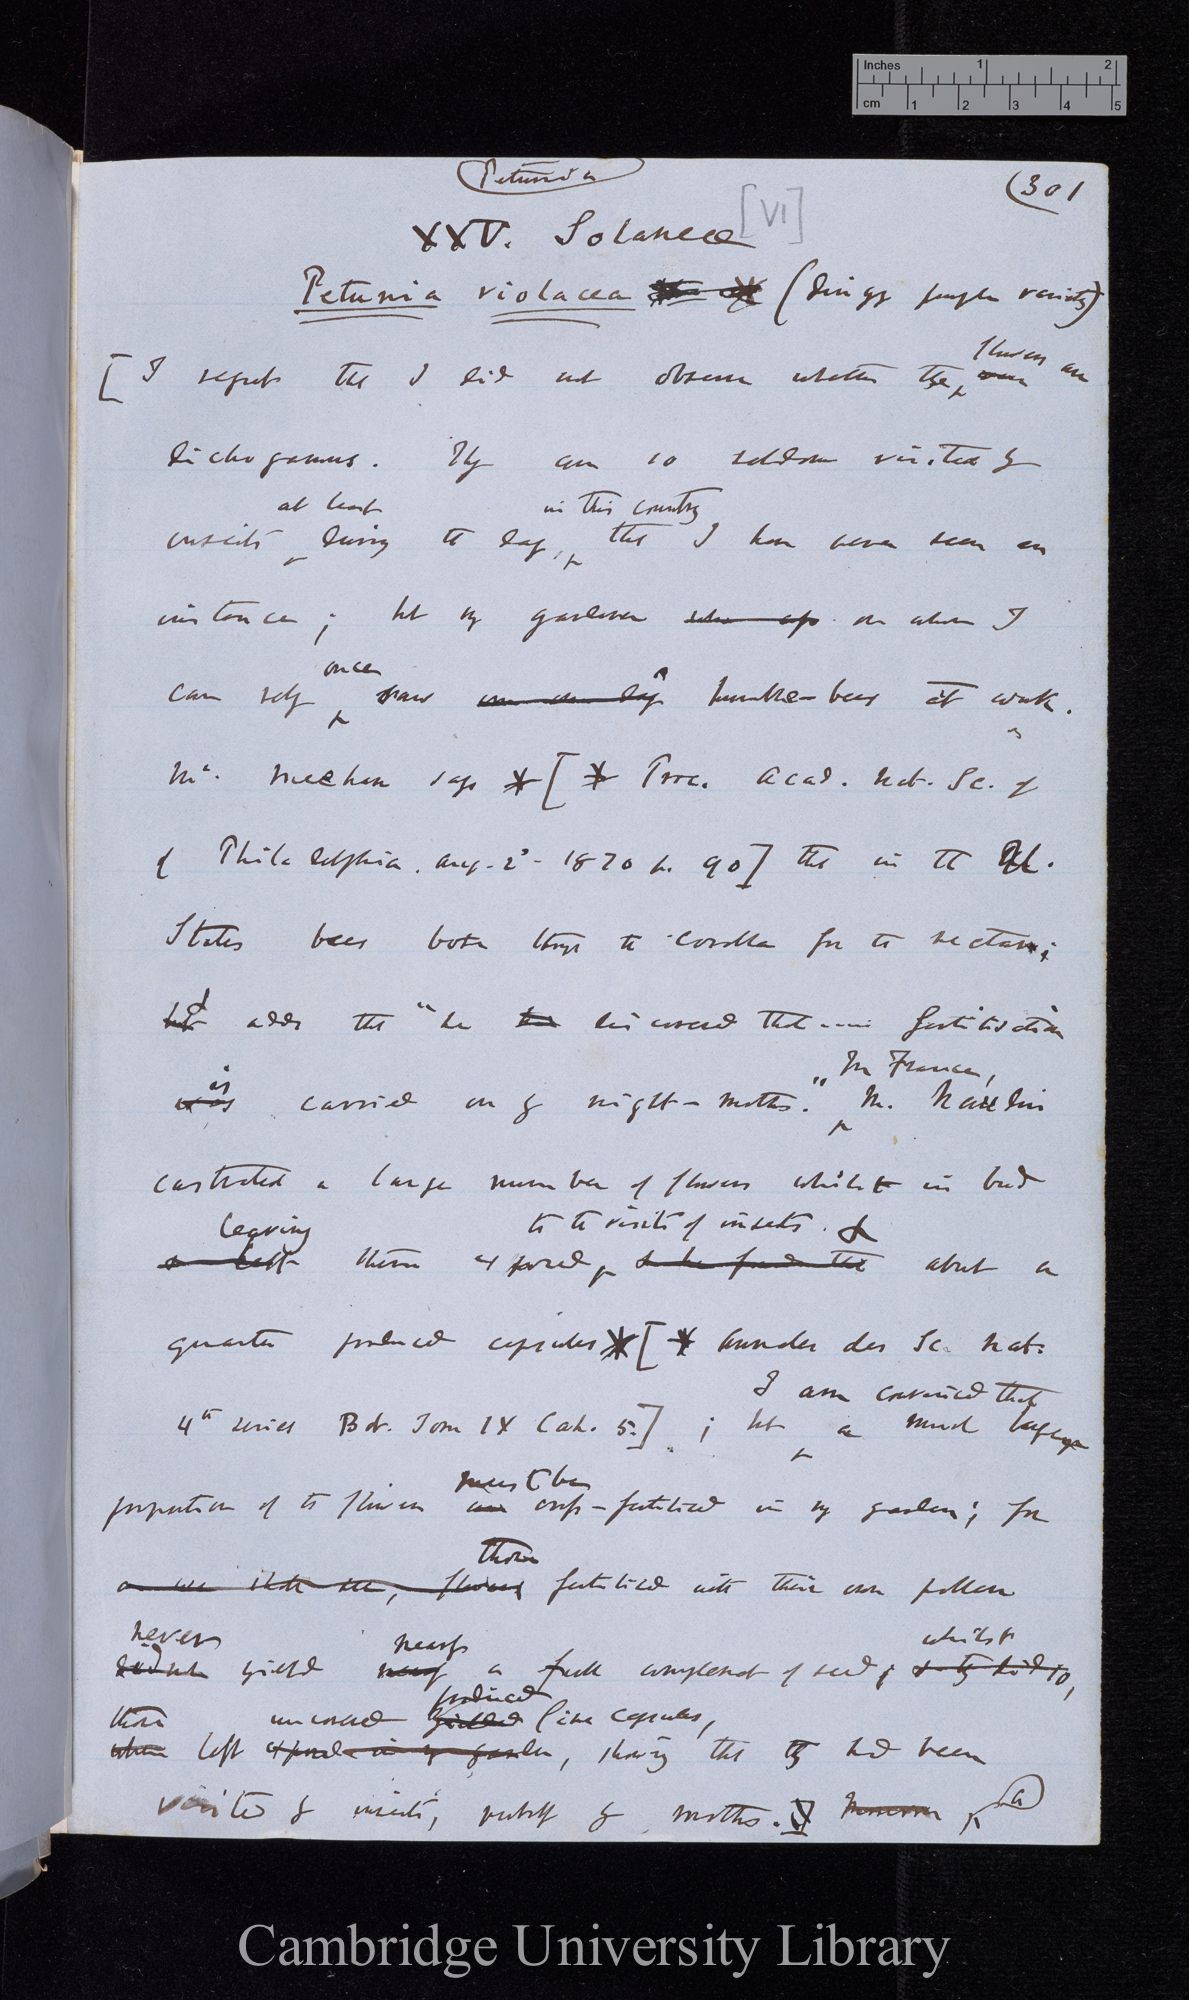 Inches 1 2
cm 1 2 3 4 5
Petunia
(301
[VI]
XXV. Solaneae
Petunia violacea (dingy purple variety)
flowers are
[I regret that I did not observe whether the
dichogamous. They are so seldom visited by
at least in this country
insects during the day, that I have never seen an
instance; but my gardener on whom I
once
can rely saw humble-bees at work.
Mr. Meehan says * [* Proc. Acad. Nat. Sc. of
of Philadelphia. Aug. 2d. 1870 p. 90] that in the U.
States bees bore through the corolla for the nectar;
& adds that "he discovered that .... fertilisation
is In France,
was carried on by night-moths." M. Naudin
castrated a large number of flowers whilst in bud
leaving to the visits of insects. &
& left them exposed, & he found that about a
quarter produced capsules * [* Annales des Sc. Nat.
I am convinced that
4th series Bot. Tom IX Cah. 5.]; but a much larger
must be
proportion of the flowers are cross-fertilised in my garden; for
those
as we shall see, flowers fertilised with their own pollen
never nearly whilst
yield nearly a full complement of seed; & they did so,
produced
those uncovered yielded fine capsules,
when left exposed in my garden, showing that they had been
visited by insects, probably by moths.] (a)
Cambridge University Library